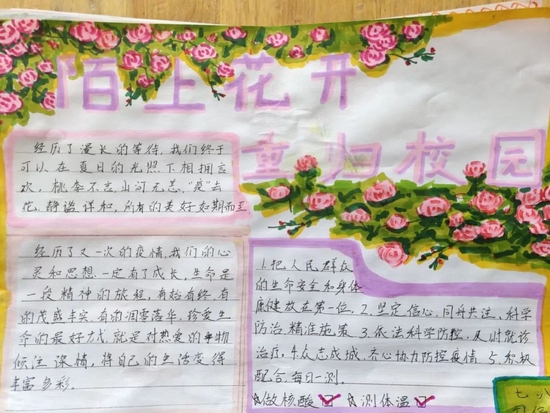 陌上花开
重归校园
经历了漫长的等待,我们终于
可以在夏日的光照下相拥言
欢,桃李不言山河无恙,"疫"去
花,静谧详和,所有的美好如期而至
经历了又一次的疫情,我们的心
灵和思想一定有了成长,生命是
一段精神的旅程,有始有终,有
的茂盛丰实,有的凋零落华,珍爱生
命的最好方式,就是对热爱的事物
倾注深情,将自己的生活变得
丰富多彩.
1.把人民群众
的生命安全和身体
健康放在第一位,2.坚定信心,同舟共济、科学
防治,精准施策 3.依法科学防控,及时就诊
治疗,4.众志成城,齐心协力防控疫情 5.积极
配合,每日一测.
做核酸 测体温
七